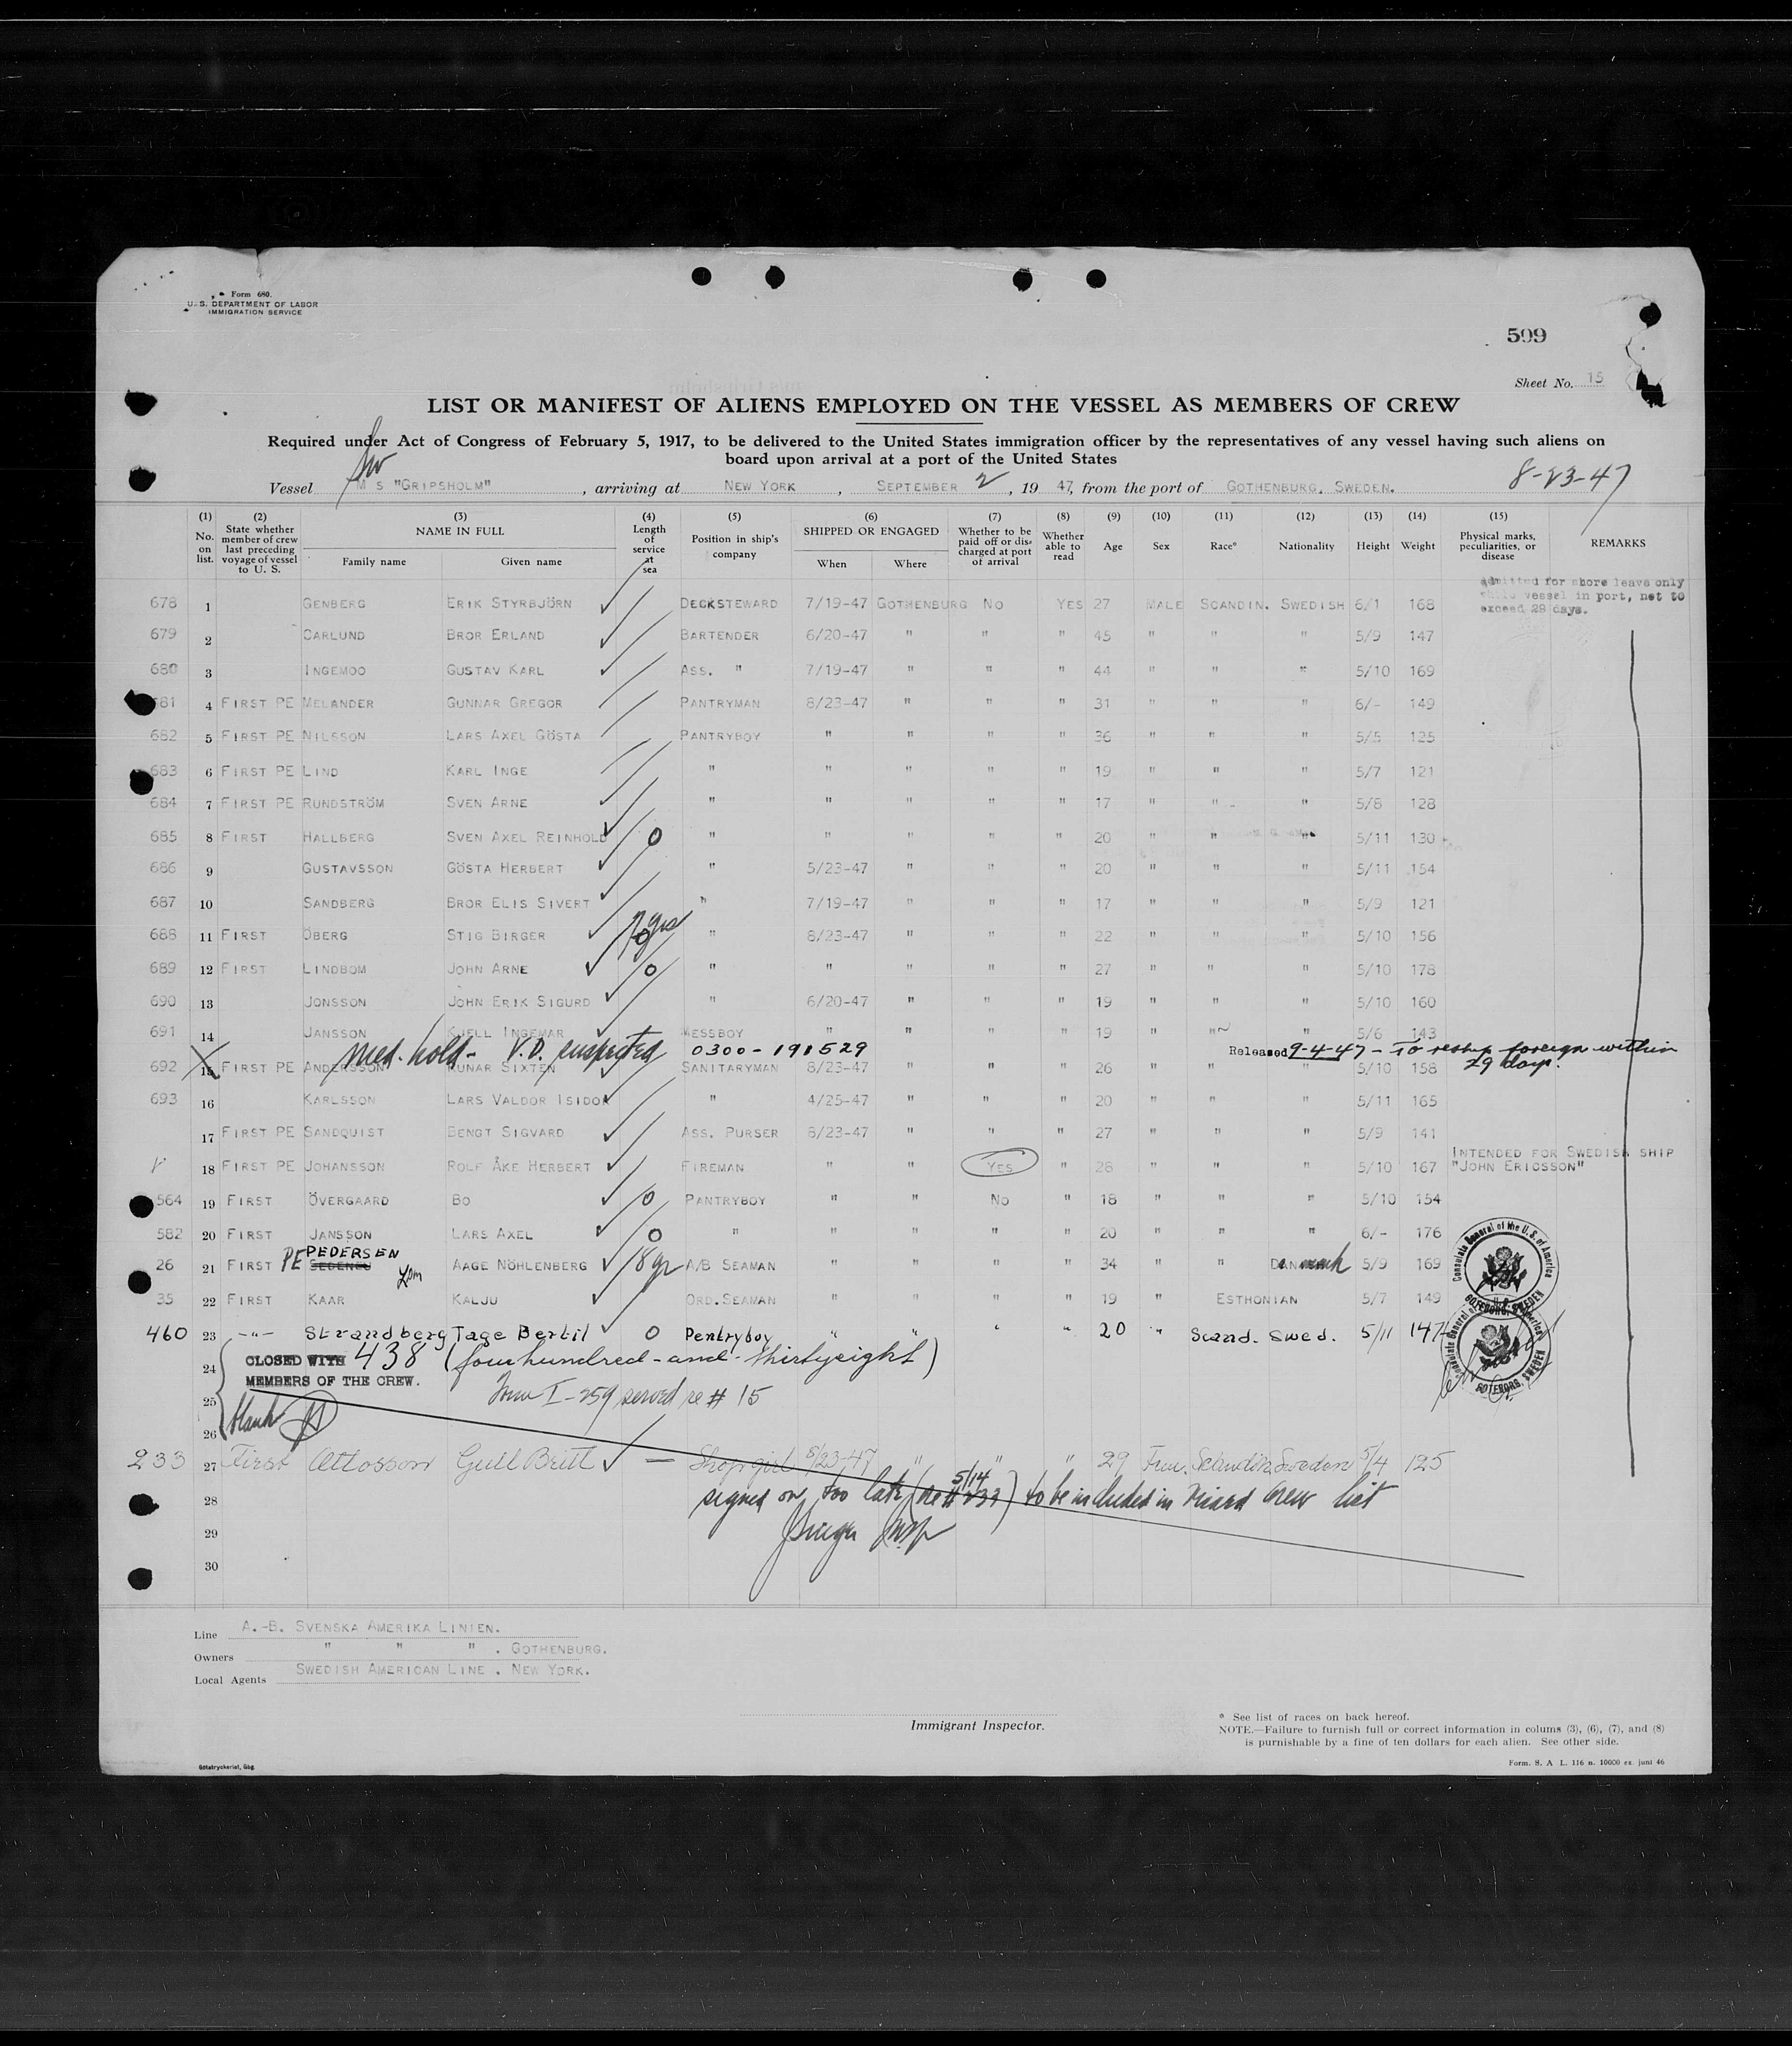 Form 680.
U. S. DEPARTMENT OF LABOR
IMMIGRATION SERVICE
599
Sheet No. 15
LIST OR MANIFEST OF ALIENS EMPLOYED ON THE VESSEL AS MEMBERS OF CREW
Required under Act of Congress of February 5, 1917, to be delivered to the United States immigration officer by the representatives of any vessel having such aliens on
board upon arrival at a port of the United States
Vessel M S "GRIPSHOLM", arriving at NEW YORK, SEPTEMBER 2, 1947, from the port of GOTHENBURG, SWEDEN. 8-23-47
(1) No. on list. (2) State whether member of crew last preceding voyage of vessel to U. S. (3) NAME IN FULL Family name Given name (4) Length of service at sea (5) Position in ship's company (6) SHIPPED OR ENGAGED When Where (7) Whether to be paid off or discharged at port of arrival (8) Whether able to read (9) Age (10) Sex (11) Race* (12) Nationality (13) Height (14) Weight (15) Physical marks, peculiarities, or disease REMARKS
admitted for shore leave only
while vessel in port, not to
exceed 29 days.
678 1 GENBERG ERIK STYRBJÖRN DECKSTEWARD 7/19-47 GOTHENBURG NO YES 27 MALE SCANDIN. SWEDISH 6/1 168
679 2 CARLUND BROR ERLAND BARTENDER 6/20-47 " " " 45 " " " 5/9 147
680 3 INGEMOO GUSTAV KARL ASS. " 7/19-47 " " " 44 " " " 5/10 169
681 4 FIRST PE MELANDER GUNNAR GREGOR PANTRYMAN 8/23-47 " " " 31 " " " 6/- 149
682 5 FIRST PE NILSSON LARS AXEL GÖSTA PANTRYBOY " " " " 36 " " " 5/5 125
683 6 FIRST PE LIND KARL INGE " " " " " 19 " " " 5/7 121
684 7 FIRST PE RUNDSTRÖM SVEN ARNE " " " " " 17 " " " 5/8 128
685 8 FIRST HALLBERG SVEN AXEL REINHOLD 0 " " " " " 20 " " " 5/11 130
686 9 GUSTAVSSON GÖSTA HERBERT " 5/23-47 " " " 20 " " " 5/11 154
687 10 SANDBERG BROR ELIS SIVERT " 7/19-47 " " " 17 " " " 5/9 121
688 11 FIRST ÖBERG STIG BIRGER " 8/23-47 " " " 22 " " " 5/10 156
689 12 FIRST LINDBOM JOHN ARNE 0 " " " " " 27 " " " 5/10 178
690 13 JONSSON JOHN ERIK SIGURD " 6/20-47 " " " 19 " " " 5/10 160
691 14 JANSSON KJELL INGEMAR MESSBOY " " " " 19 " " " 5/6 143
med. hold - V.D. suspected 0300-191529 Released 9-4-47 - To reship foreign within
29 days.
692 15 FIRST PE ANDERSSON RUNAR SIXTEN SANITARYMAN 8/23-47 " " " 26 " " " 5/10 158
693 16 KARLSSON LARS VALDOR ISIDOR " 4/25-47 " " " 20 " " " 5/11 165
17 FIRST PE SANDQUIST BENGT SIGVARD ASS. PURSER 8/23-47 " " " 27 " " " 5/9 141
18 FIRST PE JOHANSSON ROLF ÅKE HERBERT FIREMAN " " YES " 28 " " " 5/10 167 INTENDED FOR SWEDISH SHIP
"JOHN ERICSSON"
564 19 FIRST ÖVERGAARD BO 0 PANTRYBOY " " NO " 18 " " " 5/10 154
582 20 FIRST JANSSON LARS AXEL 0 " " " " " 20 " " " 6/- 176
26 21 FIRST PE PEDERSEN AAGE NÖHLENBERG 18 yr A/B SEAMAN " " " " 34 " " Danmark 5/9 169
35 22 FIRST KAAR KALJU ORD.SEAMAN " " " " 19 " ESTHONIAN 5/7 149
460 23 -"- Strandberg Tage Bertil 0 Pentryboy " " " " 20 " Scand. Swed. 5/11 147
24 CLOSED WITH 438 (four hundred-and-thirtyeight)
MEMBERS OF THE CREW.
25 Form I-259 served re # 15
26 blank
233 27 First Ottosson Gull Britt — Shopgirl 8/23-47 " " " 29 Fem. Scandin. Sweden 5/4 125
28 signed on too late (re # 233) 5/14 to be included in visaed crew list
29
30
Consulate General of the U.S. of America
GÖTEBORG, SWEDEN
Consulate General of the U.S. of America
GÖTEBORG, SWEDEN
Line A.-B. SVENSKA AMERIKA LINIEN.
Owners " " " . GOTHENBURG.
Local Agents SWEDISH AMERICAN LINE . NEW YORK.
Immigrant Inspector.
* See list of races on back hereof.
NOTE.—Failure to furnish full or correct information in colums (3), (6), (7), and (8)
is purnishable by a fine of ten dollars for each alien. See other side.
Götatryckeriet, Gbg.
Form. S. A. L. 116 n. 10000 ex. juni 46